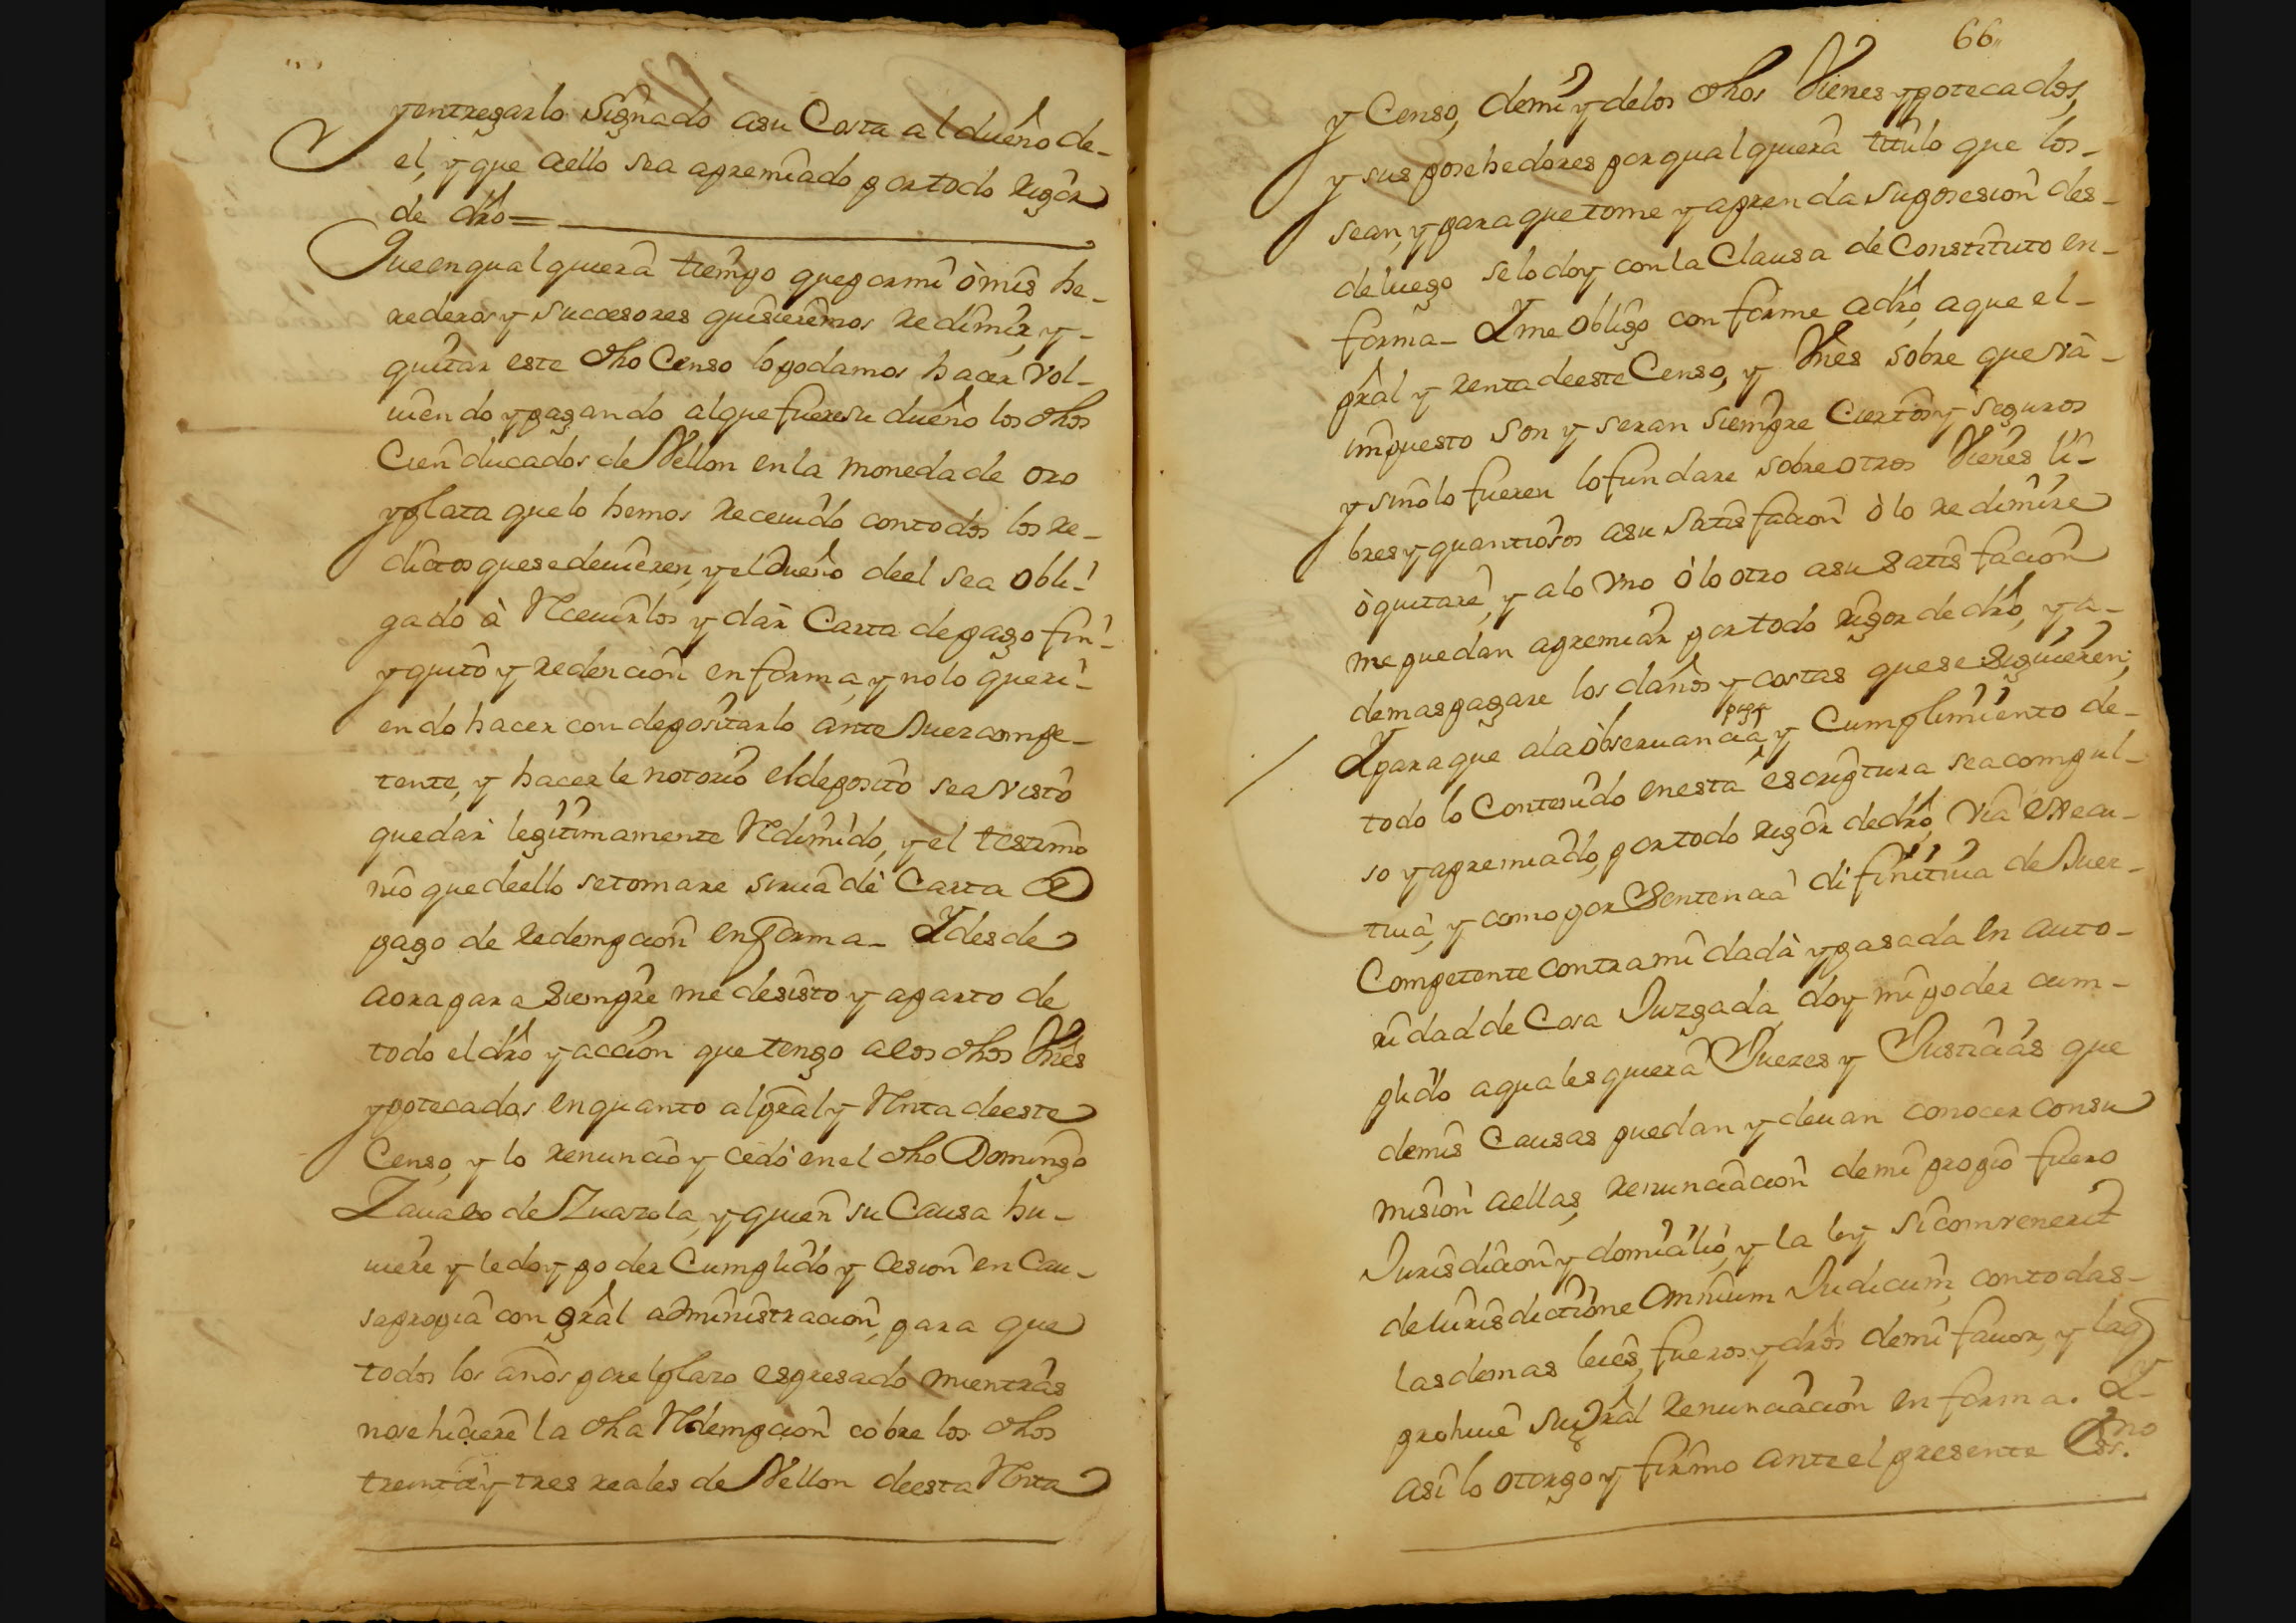 y entregarlo signado a su Costa al dueño de-
el, y que aello sea apremiado por todo Rigor
de dro=
Que en qualquiera tiempo que por mi ò mis he-
rederos y succesores quisieremos Redimir, y-
quitar este dho Censo lo podamos hacer vol-
uiendo y pagando al que fuere su dueño los dhos
Cien ducados de Vellon en la moneda de oro
y plata que lo hemos Receuido, con todos los re-
ditos que se deuieren, y el Dueño de el sea obli-
gado à Receuirlos y dàr Carta de pago fin-
y quito y redencion en forma, y no lo queri-
endo hacer con depositarlo ante Juez compe-
tente, y hacerle notorio el deposito sea visto
quedàr legitimamente Redimido, y el testimo
nio que de ello se tomare sirua dè Carta de
pago de redempcion en forma_ Y desde
aora para siempre me desisto y aparto de
todo el dro y acción que tengo a los dhos Vnes
ypotecados en quanto al pral y Renta de este
Censo, y lo renuncio y cedo en el dho Domingo
Zauala de Zuazola, y quien su Causa hu-
uiere y le doy poder Cumplido y cesion en Cau-
sa propia con gral administracion, para que
todos los años por el plazo espresado mientras
no se hiciere la dha Redempcion cobre los dhos
treinta y tres reales de Vellon de esta Renta
66
y Censo, de mi y de los dhos Vienes ypotecados,
y sus posehedores por qualquiera titulo que los-
sean, y para que tome y aprenda su posesion des-
de luego se lo doy con la Clausa de Constituto en-
forma_ Y me obligo conforme a dro, a que el-
pral y renta de este Censo, y Vnes sobre que và-
impuesto son y seran siempre Ciertos y seguros
y sino lo fueren lo fundare sobre otros Vienes li-
bres y quantiosos a su satisfacion ò lo redimire
ò quitare, y a lo vno ò lo otro a su satisfacion
me puedan apremiar por todo rigor de dro, y a-
demas pagare los daños y costas que se siguieren,
Y para que a la obseruancia, paga y Cumplimiento de-
todo lo Contenido en esta escriptura sea compul-
so y apremiado, por todo rigor de dro, via execu-
tiua, y como por Sentencia difinitiua de Juez-
Competente contra mi dada y pasada en auto-
ridad de Cosa Juzgada, doy mi poder cum-
plido a qualesquiera Juezes y Justicias que
de mis Causas puedan y deuan conocer con su
mision a ellas, renunciacion de mi propio fuero
Jurisdicion y domicilio, y la ley si comvenerit
de iurisdictione omnium Judicum, con todas-
las demas leies, fueros y dros de mi fauor, y la q
prohiue su gral renunciacion en forma. Y
asi lo otorgo y firmo ante el presente Essno.